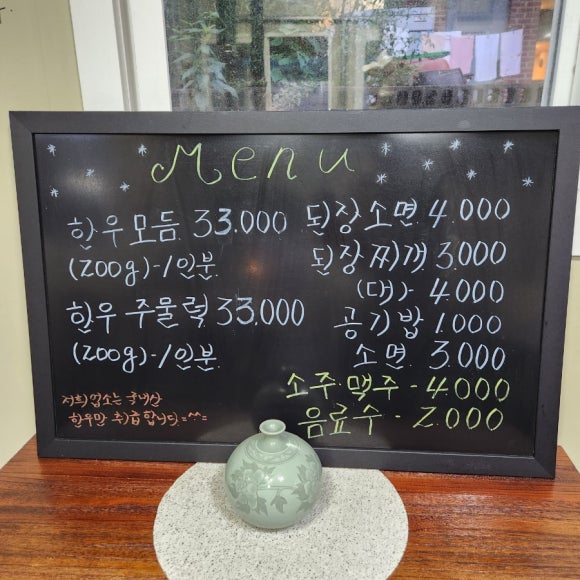 Menu
한우모듬 33.000
(200g)-1인분
한우 주물럭 33.000
(200g)-1인분
저희 업소는 국내산
한우만 취급합니다.=^^=
된장소면 4.000
된장찌개 3.000
(대)- 4.000
공기밥 1.000
소면. 3.000
소주.맥주-4.000
음료수-2.000